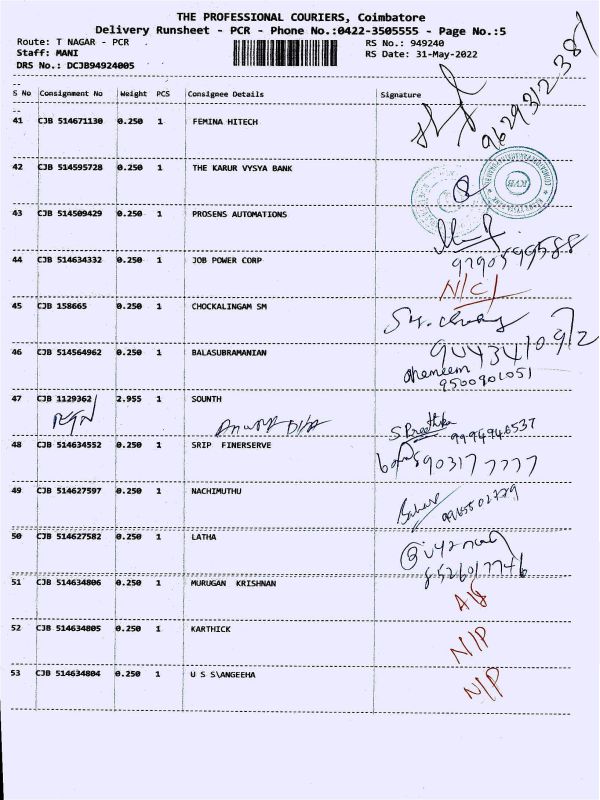 THE PROFESSIONAL COURIERS, Coimbatore
Delivery Runsheet - PCR - Phone No.:0422-3505555 - Page No.:5
Route: T NAGAR - PCR RS No.: 949240
Staff: MANI RS Date: 31-May-2022
DRS No.: DCJB94924005
S No Consignment No Weight PCS Consignee Details Signature
9629312381
41 CJB 514671130 0.250 1 FEMINA HITECH
42 CJB 514595728 0.250 1 THE KARUR VYSYA BANK
KVB
43 CJB 514509429 0.250 1 PROSENS AUTOMATIONS
9790599588
44 CJB 514634332 0.250 1 JOB POWER CORP
N/C
45 CJB 158665 0.250 1 CHOCKALINGAM SM
46 CJB 514564962 0.250 1 BALASUBRAMANIAN
9500901051
47 CJB 1129362 2.955 1 SOUNTH
S Preethika 9994946537
48 CJB 514634552 0.250 1 SRIP FINERSERVE
90317 7777
49 CJB 514627597 0.250 1 NACHIMUTHU
9965502729
50 CJB 514627582 0.250 1 LATHA
8526017746
51 CJB 514634806 0.250 1 MURUGAN KRISHNAN
52 CJB 514634805 0.250 1 KARTHICK
N/P
53 CJB 514634804 0.250 1 U S S\ANGEEHA
N/P